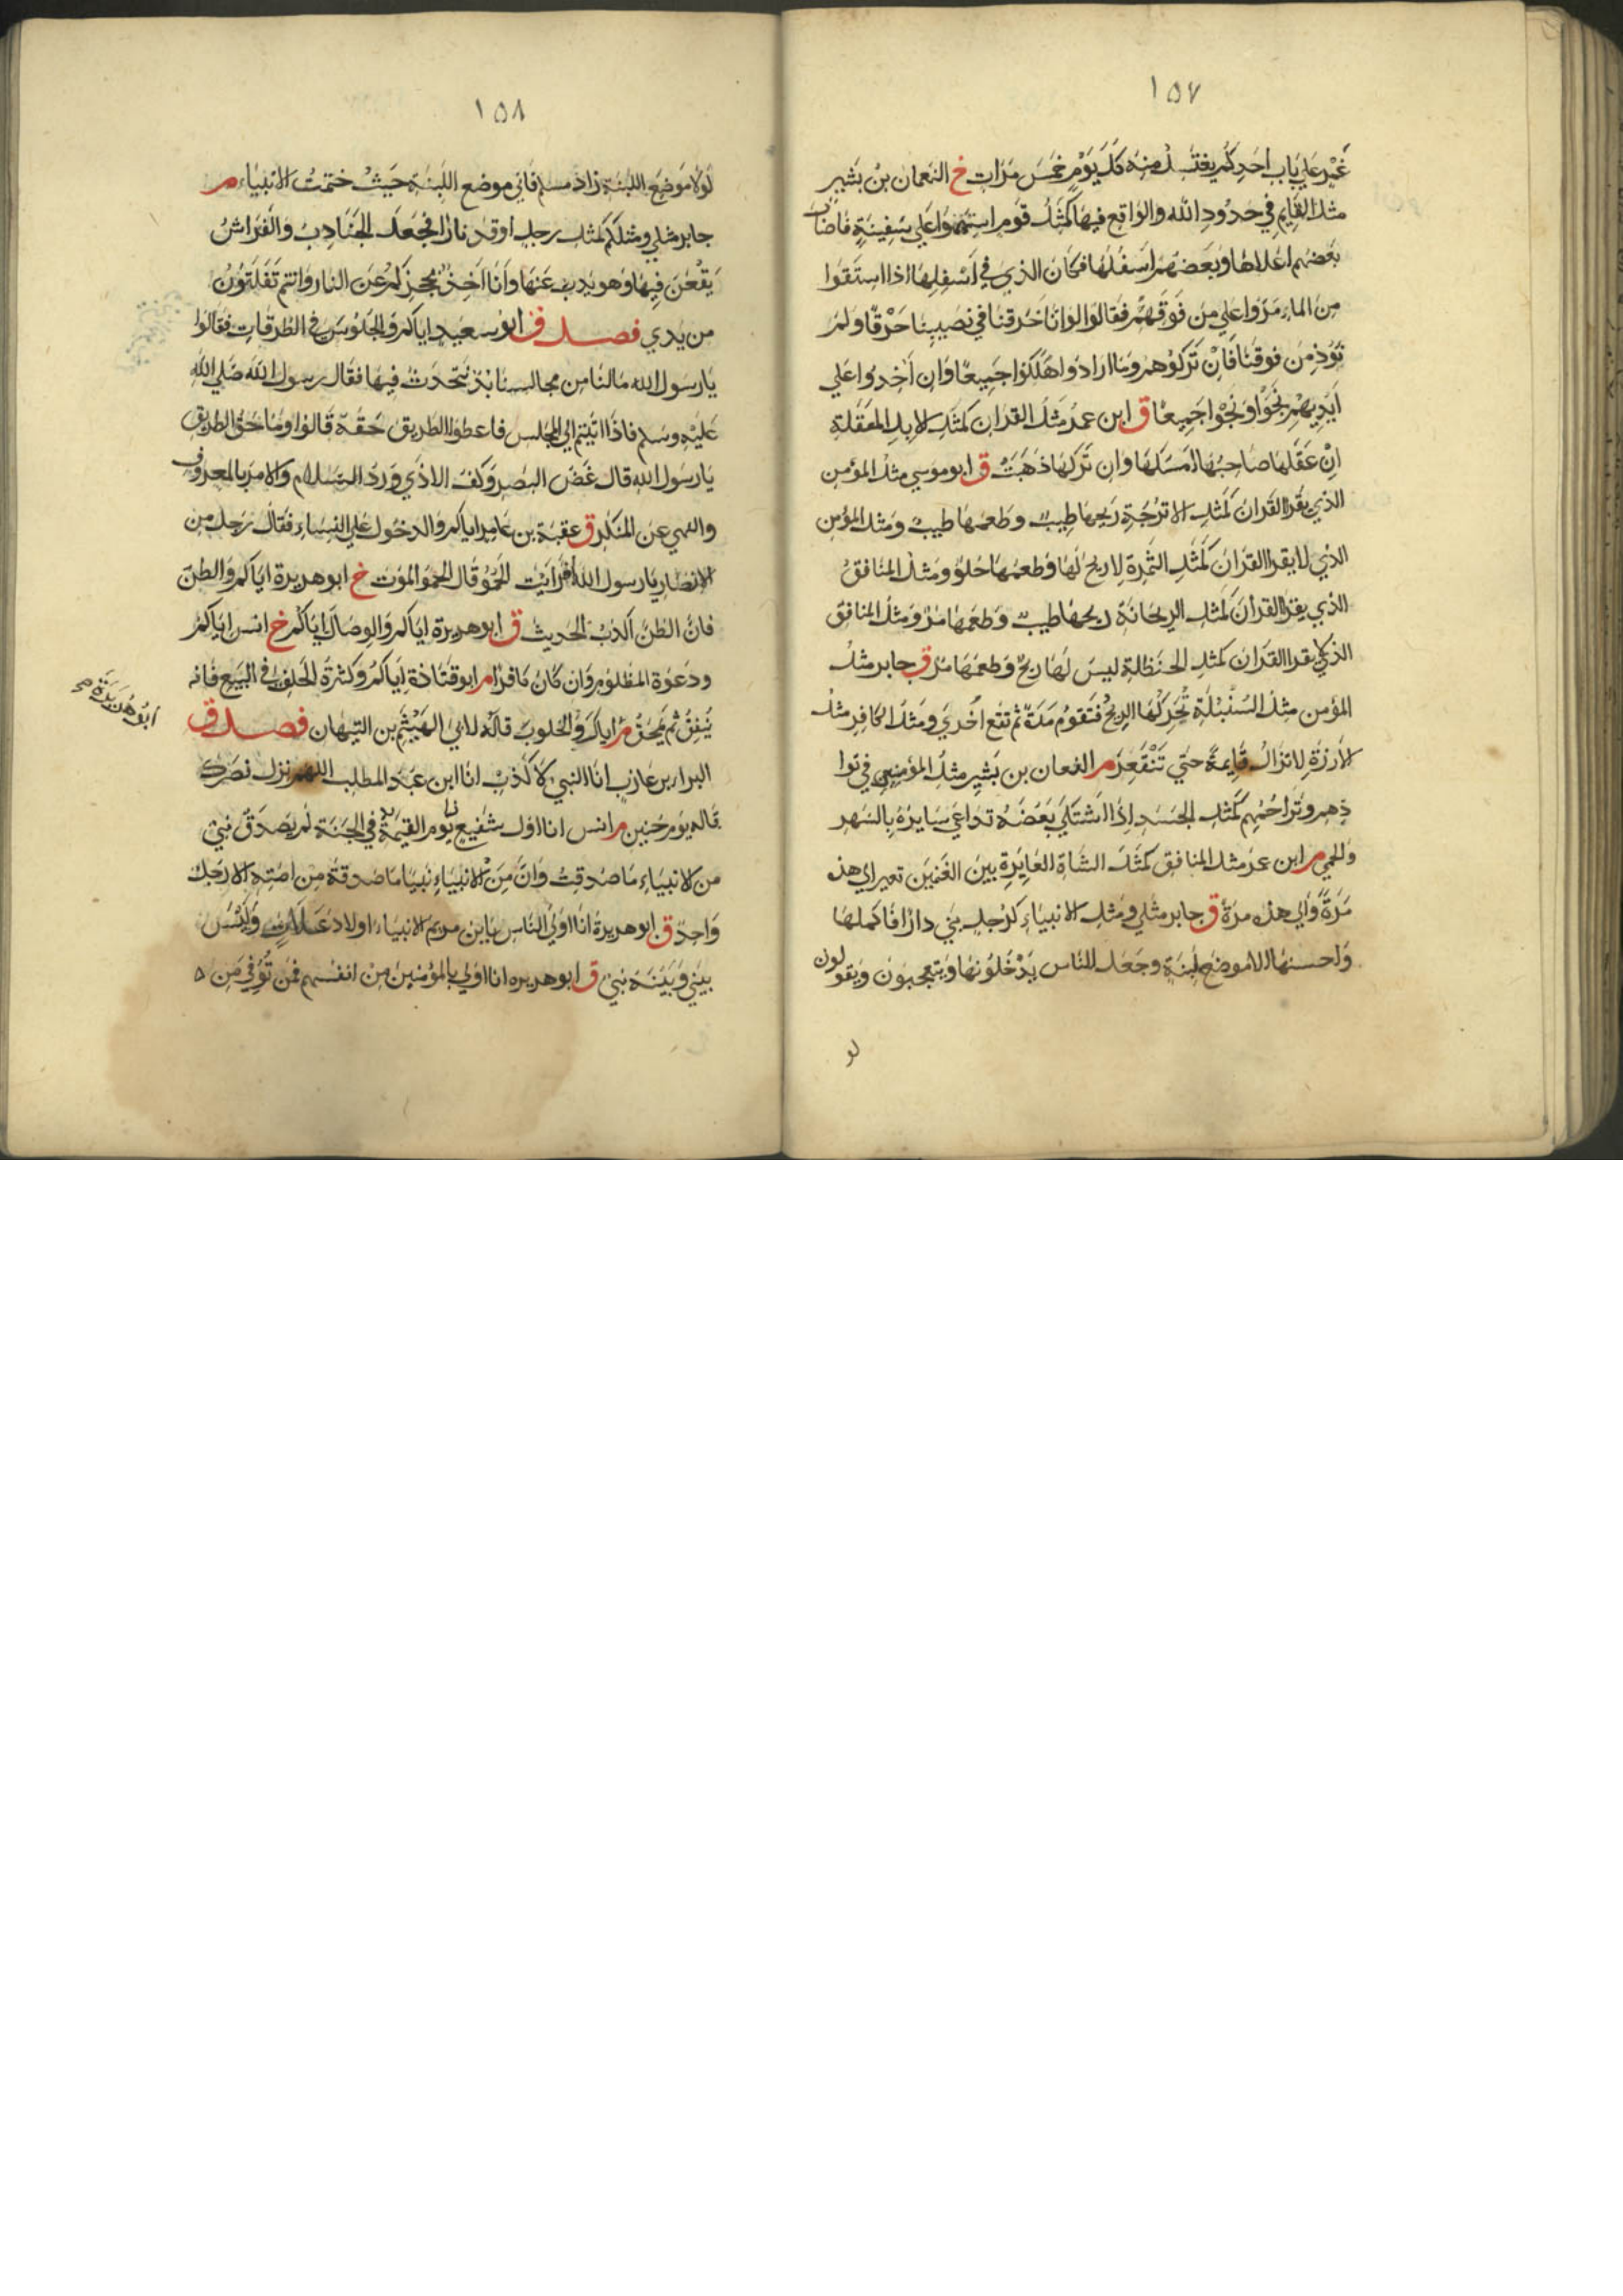 ١٥٧
غمر على باب احدكم يغتسل منه كل يوم خمس مرات خ النعمان بن بشير
مثل القايم في حدود الله والواقع فيها كمثل قوم استهموا على سفينة فاصاب
بعضهم اعلاها وبعضهم اسفلها فكان الذي في اسفلها اذا استقوا
من الماء مروا على من فوقهم فقالوا لو انا خرقنا في نصيبنا خرقا ولم
نوذ من فوقنا فان تركوهم وما ارادوا هلكوا جميعا وان اخذوا على
ايديهم نجوا ونجوا جميعا ق ابن عمر مثل القران كمثل الابل المعقلة
ان عقلها صاحبها امسكها وان تركها ذهبت ق ابو موسي مثل المؤمن
الذي يقرا القران كمثل الاترجة ريحها طيب وطعمها طيب ومثل المؤمن
الذي لا يقرا القران كمثل التمرة لا ريح لها وطعمها حلو ومثل المنافق
الذي يقرا القران كمثل الريحانة ريحها طيب وطعمها مر ومثل المنافق
الذي لا يقرا القران كمثل الحنظلة ليس لها ريح وطعمها مر ق جابر مثل
المؤمن مثل السنبلة تحركها الريح فتقوم مرة ثم تقع اخري ومثل الكافر مثل
الارزة لا تزال قايمة حتي تنقعر م النعمان بن بشير مثل المؤمنين في توا
دهم وتراحمهم كمثل الجسد اذا اشتكي بعضه تداعي سايره بالسهر
والحمي م ابن عمر مثل المنافق كمثل الشاة العايرة بين الغنمين تعير الي هذه
مرة والي هذه مرة ق جابر مثلي ومثل الانبياء كرجل بني دارا فاكملها
واحسنها الا موضع لبنة وجعل الناس يدخلونها ويتعجبون ويقولون
لو
١٥٨
لولا موضع اللبنة زاد مسلم فاني موضع اللبنة حيث ختمت الانبياء م
جابر مثلي ومثلكم كمثل رجل اوقد نارا فجعل الجنادب والفراش
يقعن فيها وهو يذب عنها وانا اخذ بحجزكم عن النار وانتم تفلتون
من يدي فصل ق ابو سعيد اياكم والجلوس في الطرقات فقالوا
يا رسول الله ما لنا من مجالسنا بد نتحدث فيها فقال رسول الله صلي الله
عليه وسلم فاذا اتيتم الي المجلس فاعطوا الطريق حقه قالوا وما حق الطريق
يا رسول الله قال غض البصر وكف الاذي ورد السلام والامر بالمعروف
والنهي عن المنكر ق عقبة بن عامر اياكم والدخول علي النساء فقال رجل من
الانصار يا رسول الله افرايت الحمو قال الحمو الموت خ ابو هريرة اياكم والظن
فان الظن اكذب الحديث ق ابو هريرة اياكم والوصال اياكم خ انس اياكم
ودعوة المظلوم وان كان كافرا م ابو قتادة اياكم وكثرة الحلف في البيع فانه
ينفق ثم يمحق م اياك والحلوب قاله لابي الهيثم بن التيهان فصل ق
ابو هريرة صح
البراء بن عازب انا النبي لا كذب انا ابن عبد المطلب اللهم نزل نصرك
قاله يوم حنين م انس انا اول شفيع يوم القيمة في الجنة لم يصدق نبي
من الانبياء ما صدقت وان من الانبياء نبيا ما صدقه من امته الا رجل
واحد ق ابو هريرة انا اولي الناس بابن مريم الانبياء اولاد علات وليس
بيني وبينه نبي ق ابو هريره انا اولي بالمؤمنين من انفسهم فمن توفي من